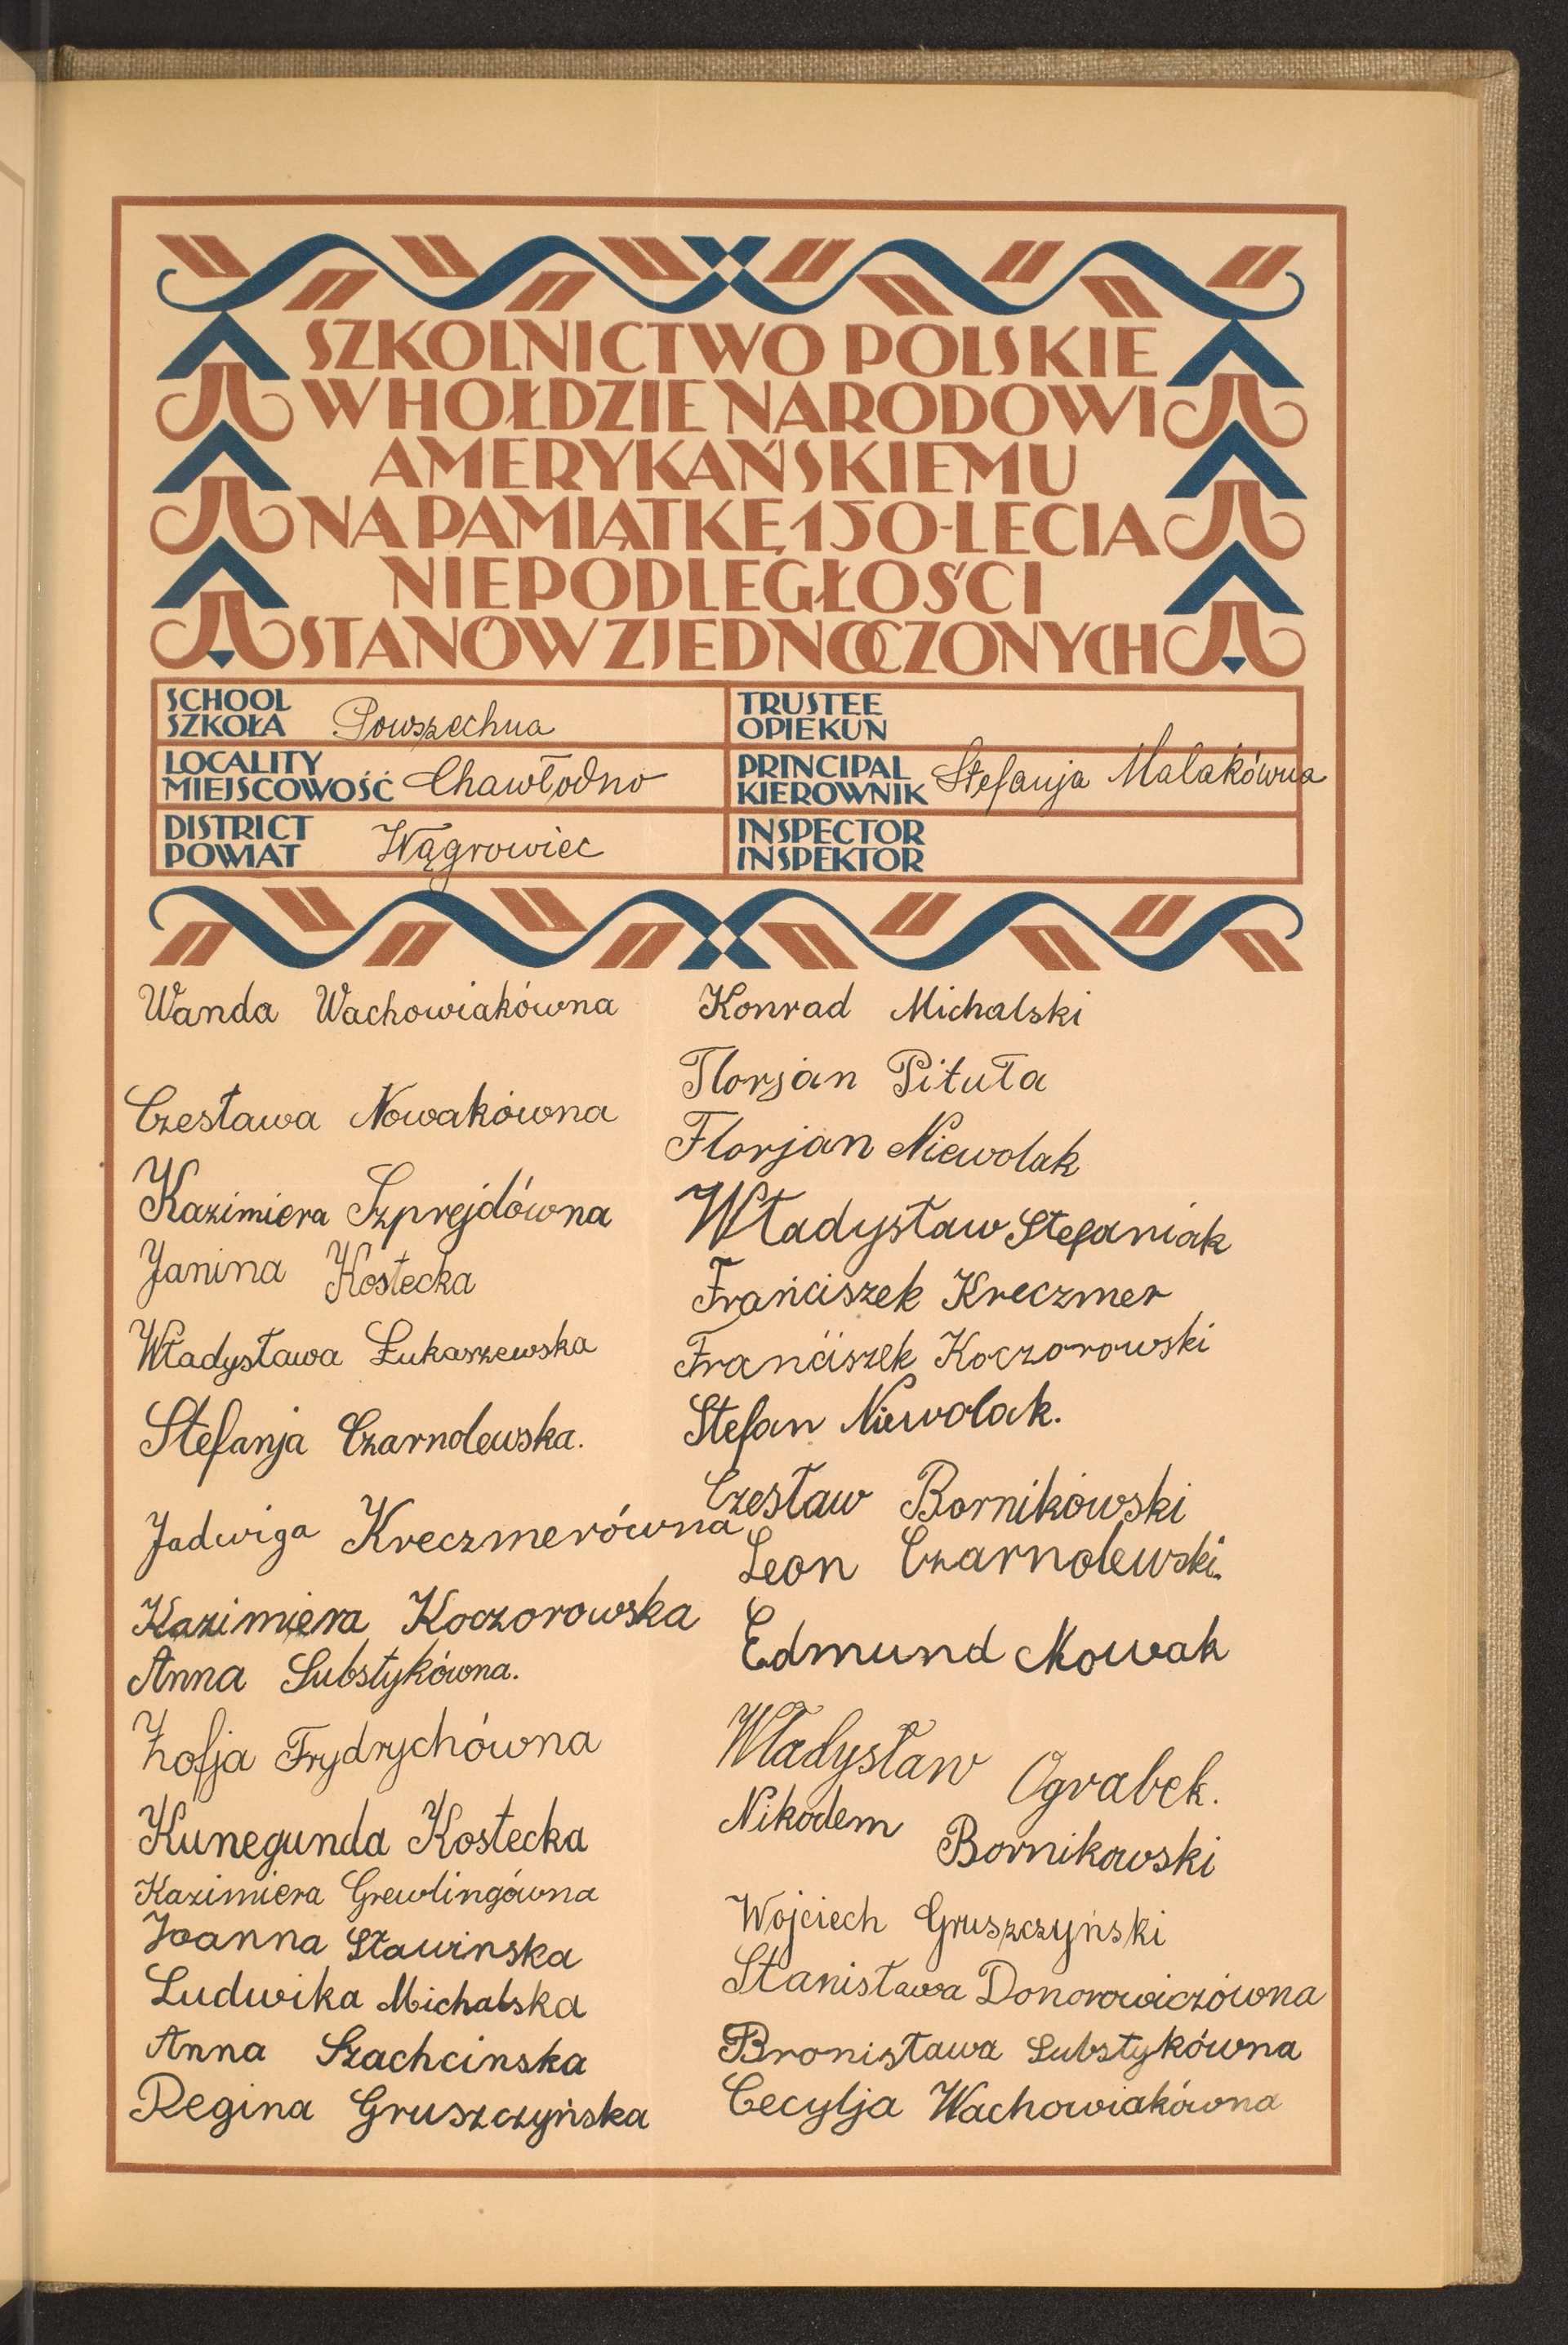 SZKOLNICTWO POLSKIE
W HOŁDZIE NARODOWI
AMERYKAŃSKIEMU
NA PAMIĄTKĘ 150-LECIA
NIEPODLEGŁOŚCI
STANÓW ZJEDNOCZONYCH
SCHOOL
SZKOŁA Powszechna
TRUSTEE
OPIEKUN
LOCALITY
MIEJSCOWOŚĆ Chawłodno
PRINCIPAL
KIEROWNIK Stefanja Malakówna
DISTRICT
POWIAT Wągrowiec
INSPECTOR
INSPEKTOR
Wanda Wachowiakówna
Czesława Nowakówna
Kazimiera Szprejdówna
Janina Kostecka
Władysława Łukaszewska
Stefanja Czarnolewska.
Jadwiga Kreczmerówna
Kazimiera Koczorowska
Anna Substykówna.
Zofja Frydrychówna
Kunegunda Kostecka
Kazimiera Grewlingówna
Joanna Sławinska
Ludwika Michalska
Anna Szachcinska
Regina Gruszczyńska
Konrad Michalski
Florjan Pituła
Florjan Niewolak
Władysław Stefaniak
Franciszek Kreczmer
Franciszek Koczorowski
Stefan Niewolak.
Czesław Bornikowski
Leon Czarnolewski.
Edmund Nowak
Władysław Ograbek.
Nikodem Bornikowski
Wojciech Gruszczyński
Stanisława Donorowiczówna
Bronisława Substykówna
Cecylja Wachowiakówna